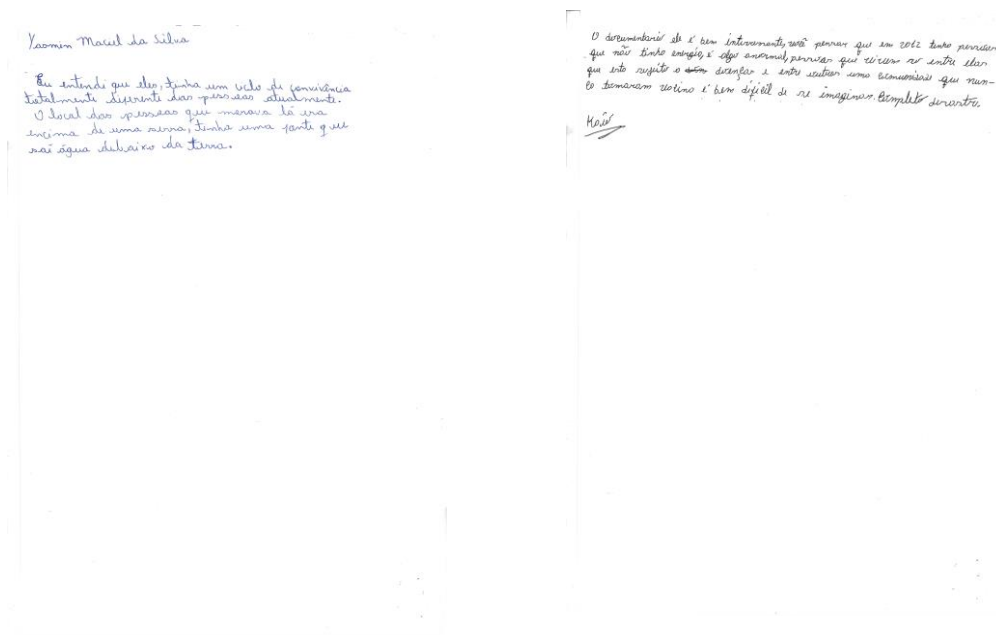 Yasmin Maciel da Silva
Eu entendi que eles, tinha um ciclo de convivência
totalmente diferente das pessoas atualmente.
O local das pessoas que morava lá era
encima de uma serra, tinha uma fonte que
sai água debaixo da terra.
O documentario ele é bem interessante, você pensar que em 2012 tenha pessoas
que não tinha energia, é algo anormal, pessoas que vivem só entre elas
que esta sujeito a doenças e entre outras uma comunidade que nun-
ca tomaram vacina é bem dificil de se imaginar. Completo desastre.